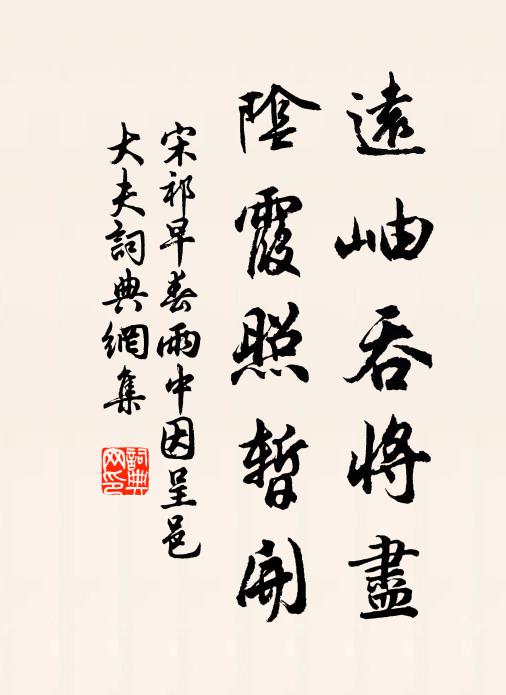 遠岫吞將盡
陰霞照暫開
宋祁早春雨中因呈邑
大夫詞典網集
詞典
网印